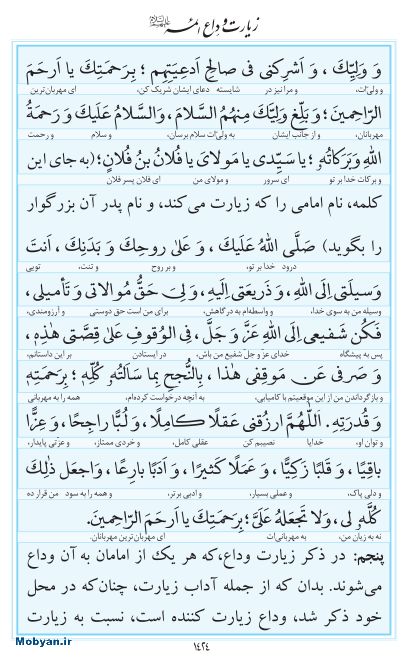 زیارت وداع ائمّه علیهم‌السلام
وَ وَلِیِّکَ ، وَ اَشرِکنی فی صالِحِ اَدعِیَتِهِم ؛ بِرَحمَتِکَ یا اَرحَمَ
و ولی‌ات، و مرا نیز در شایسته دعای ایشان شریک کن، ای مهربان‌ترین
الرّاحِمینَ؛ وَ بَلِّغ وَلِیَّکَ مِنهُمُ السَّلامَ، وَالسَّلامُ عَلَیکَ وَ رَحمَةُ
مهربانان، و از جانب ایشان به ولی‌ات سلام برسان، و سلام و رحمت
اللهِ وَ بَرَکاتُهُ ؛ یا سَیِّدی یا مَولایَ یا فُلانُ بنُ فُلانٍ؛ (به جای این
و برکات خدا بر تو ای سرور و مولای من ای فلان پسر فلان
کلمه، نام امامی را که زیارت می‌کند، و نام پدر آن بزرگوار
را بگوید) صَلَّی اللهُ عَلَیکَ ، وَ عَلیٰ روحِکَ وَ بَدَنِکَ ، اَنتَ
درود خدا بر تو، و بر روح و تنت، تویی
وَسیلَتی اِلَی اللهِ ، وَ ذَریعَتی اِلَیهِ ، وَ لی حَقُّ مُوالاتی وَ تَأمیلی ،
وسیله من به سوی خدا، و واسطه‌ام به درگاهش، برای من است حق دوستی و آرزومندی،
فَکُن شَفیعی اِلَی اللهِ عَزَّ وَ جَلَّ ، فِی الوُقوفِ عَلیٰ قِصَّتی هٰذِهِ ،
پس به پیشگاه خدای عز و جل شفیع من باش، در ایستادن بر این داستانم،
وَ صَرفی عَن مَوقِفی هٰذا ، بِالنُّجحِ بِما سَأَلتُهُ کُلِّهِ ؛ بِرَحمَتِهِ
و بازگرداندن من از این موقعیتم با کامیابی، به آنچه درخواست کرده‌ام، همه را به مهربانی
وَ قُدرَتِهِ . اَللّٰهُمَّ ارزُقنی عَقلًا کامِلًا ، وَ لُبًّا راجِحًا ، وَ عِزًّا
و توان او، خدایا نصیبم کن عقلی کامل، و خردی ممتاز، و عزّتی پایدار،
باقِیًا ، وَ قَلبًا زَکِیًّا ، وَ عَمَلًا کَثیرًا ، وَ اَدَبًا بارِعًا ، وَاجعَل ذٰلِکَ
و دلی پاک، و عملی بسیار، و ادبی برتر، و همه را به سود من قرار ده
کُلَّهُ لی ، وَلا تَجعَلهُ عَلَیَّ ؛ بِرَحمَتِکَ یا اَرحَمَ الرّاحِمینَ.
نه به زیان من، به مهربانی‌ات ای مهربان‌ترین مهربانان.
پنجم: در ذکر زیارت وداع،که هر یک از امامان به آن وداع
می‌شوند. بدان که از جمله آداب زیارت، چنان‌که در محل
خود ذکر شد، وداع زیارت کننده است، نسبت به زیارت
Mobyan.ir
۱۴۲۴